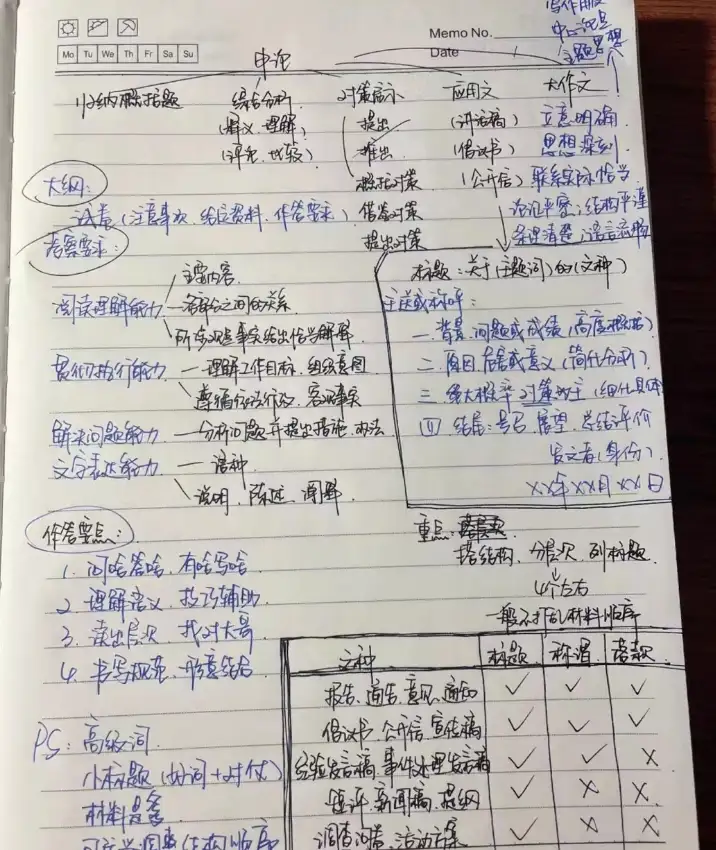 Memo No.
Mo Tu We Th Fr Sa Su
Date /
中心论点
主题思想
申论
归纳概括题 综合分析 对策启示 应用文 大作文
(释义、理解) 提出 (讲话稿) 立意明确
(评论、比较) 推出 (倡议书) 思想深刻
概括对策 (公开信) 联系实际恰当
大纲:
试卷(注意事项、给定资料、作答要求) 借鉴对策 论证严密;结构平谨
提出对策 条理清楚;语言流畅
考察要求:
主要内容
阅读理解能力 各部分之间的关系
所涉观点事实给出恰当解释
贯彻执行能力 理解工作目标、组织意图
遵循依法行政、客观事实
解决问题能力 分析问题并提出措施、办法
文字表达能力 语种
说明、陈述、阐释
标题:关于(主题词)的(文种)
主送或称呼:
一、背景、问题或成绩(高度概括)
二、原因危害或意义(简化分析)
三、绝大概率对策为主(细化具体
四 结尾:号召、展望、总结评价
发文者(身份)
XX年XX月XX日
作答要点:
1. 问啥答啥、有啥写啥
2. 理解含义、技巧辅助
3. 读出层次、找对大哥
4. 书写规范、形意结合
重点:
搭结构、分层次、列标题
4个左右
一般不打乱材料顺序
文种 标题 称谓 落款
报告、通告、意见、通知 ✓ ✓ ✓
倡议书、公开信、宣传稿 ✓ ✓ ✓
经验发言稿、事件处理发言稿 ✓ ✓ ×
短评、新闻稿、提纲 ✓ × ×
调查问卷、活动方案 ✓ × ×
PS:高级词
小标题(好词+对仗)
材料是爹